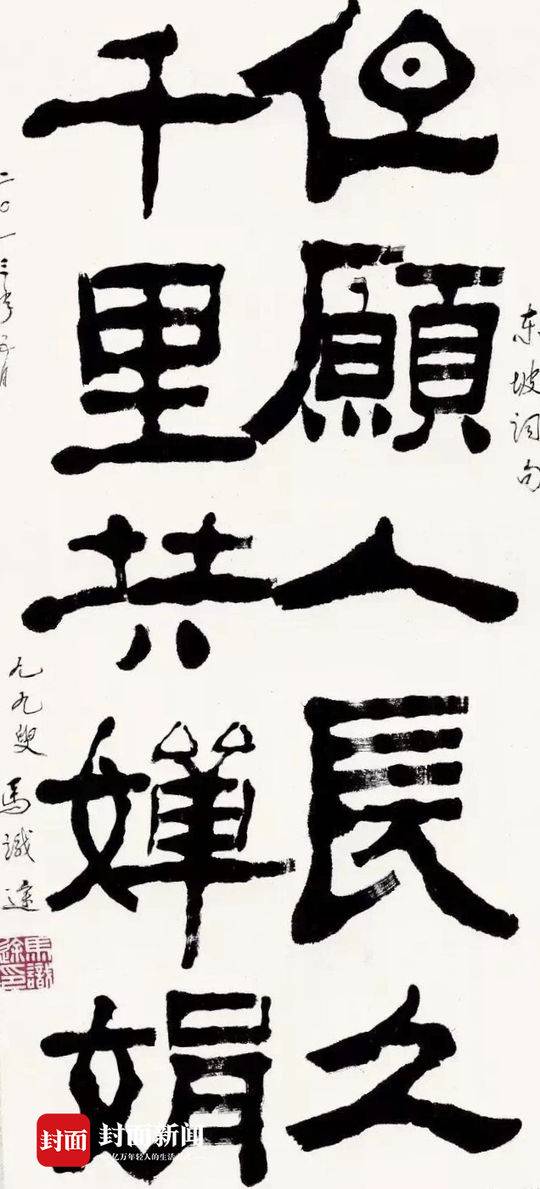 东坡词句
但願人長久
千里共嬋娟
二〇一三年五月
九九叟 馬識途
馬識
途印
封面 封面新闻
亿万年轻人的生活方式